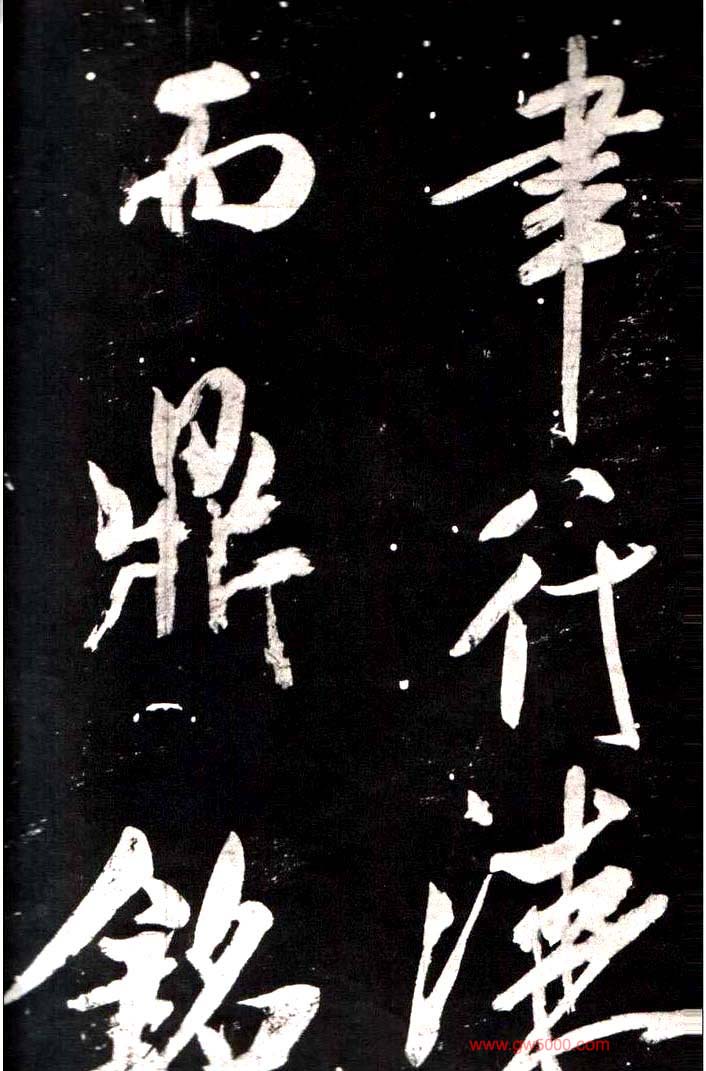 聿行
而鼎銘
www.gw5000.com